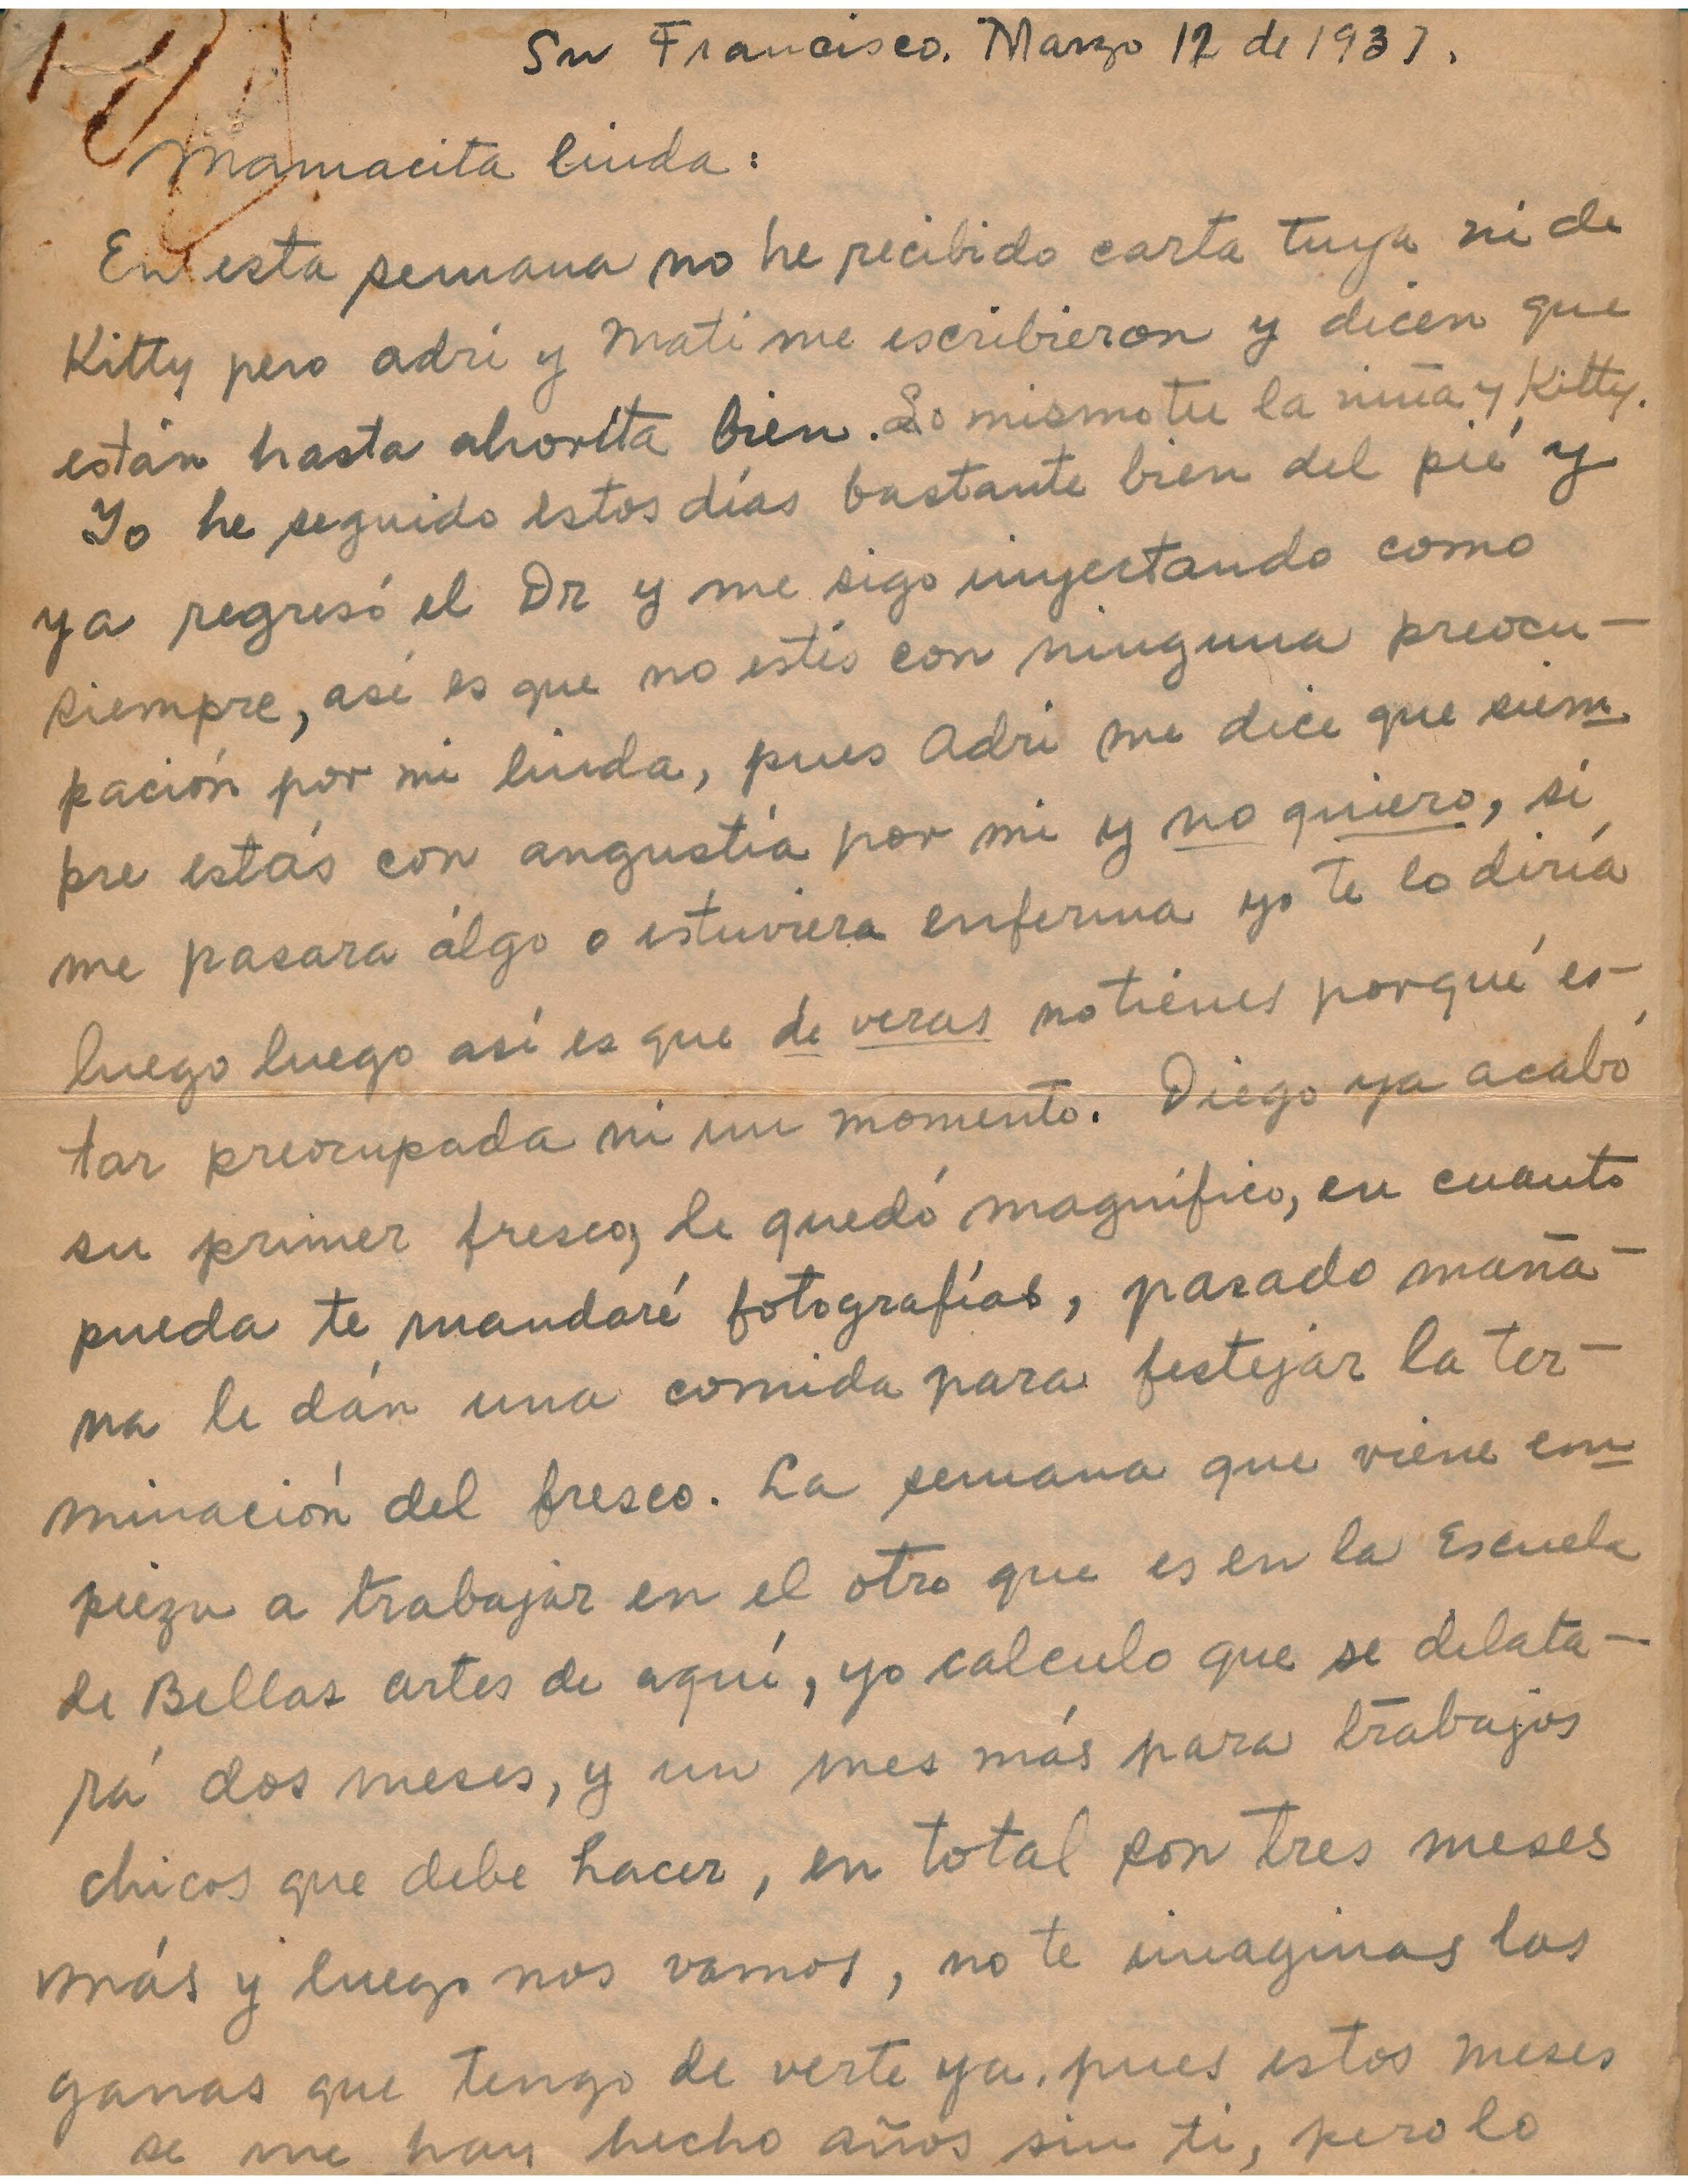 Sn Francisco. Marzo 12 de 1931.
Mamacita linda:
En esta semana no he recibido carta tuya ni de
Kitty pero adri y Mati me escribieron y dicen que
están hasta ahorita bien. Lo mismo tu la niña y Kitty.
Yo he seguido estos días bastante bien del pié y
ya regresó el Dr y me sigo inyectando como
siempre, asi es que no estés con ninguna preocu-
pación por mi linda, pues Adri me dice que siem
pre estás con angustia por mi y no quiero, si
me pasara álgo o estuviera enferma yo te lo diría
luego luego asi es que de veras no tienes porqué es-
tar preocupada ni un momento. Diego ya acabó
su primer fresco, le quedó magnífico, en cuanto
pueda te mandaré fotografías, pasado maña-
na le dán una comida para festejar la ter-
minación del fresco. La semana que viene em
pieza a trabajar en el otro que es en la Escuela
de Bellas artes de aquí, yo calculo que se dilata-
rá dos meses, y un mes más para trabajos
chicos que debe hacer, en total son tres meses
más y luego nos vamos, no te imaginas las
ganas que tengo de verte ya, pues estos meses
se me han hecho años sin ti, pero lo